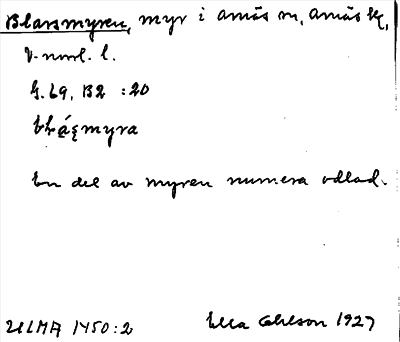 Blarsmyren, myr i Amås m, Amås Kg,
V. norrl. l.
G. 69, B2 :20
myra
En del av myren numera odlad.
ULMA 1450:2 Ella Ohlson 1927